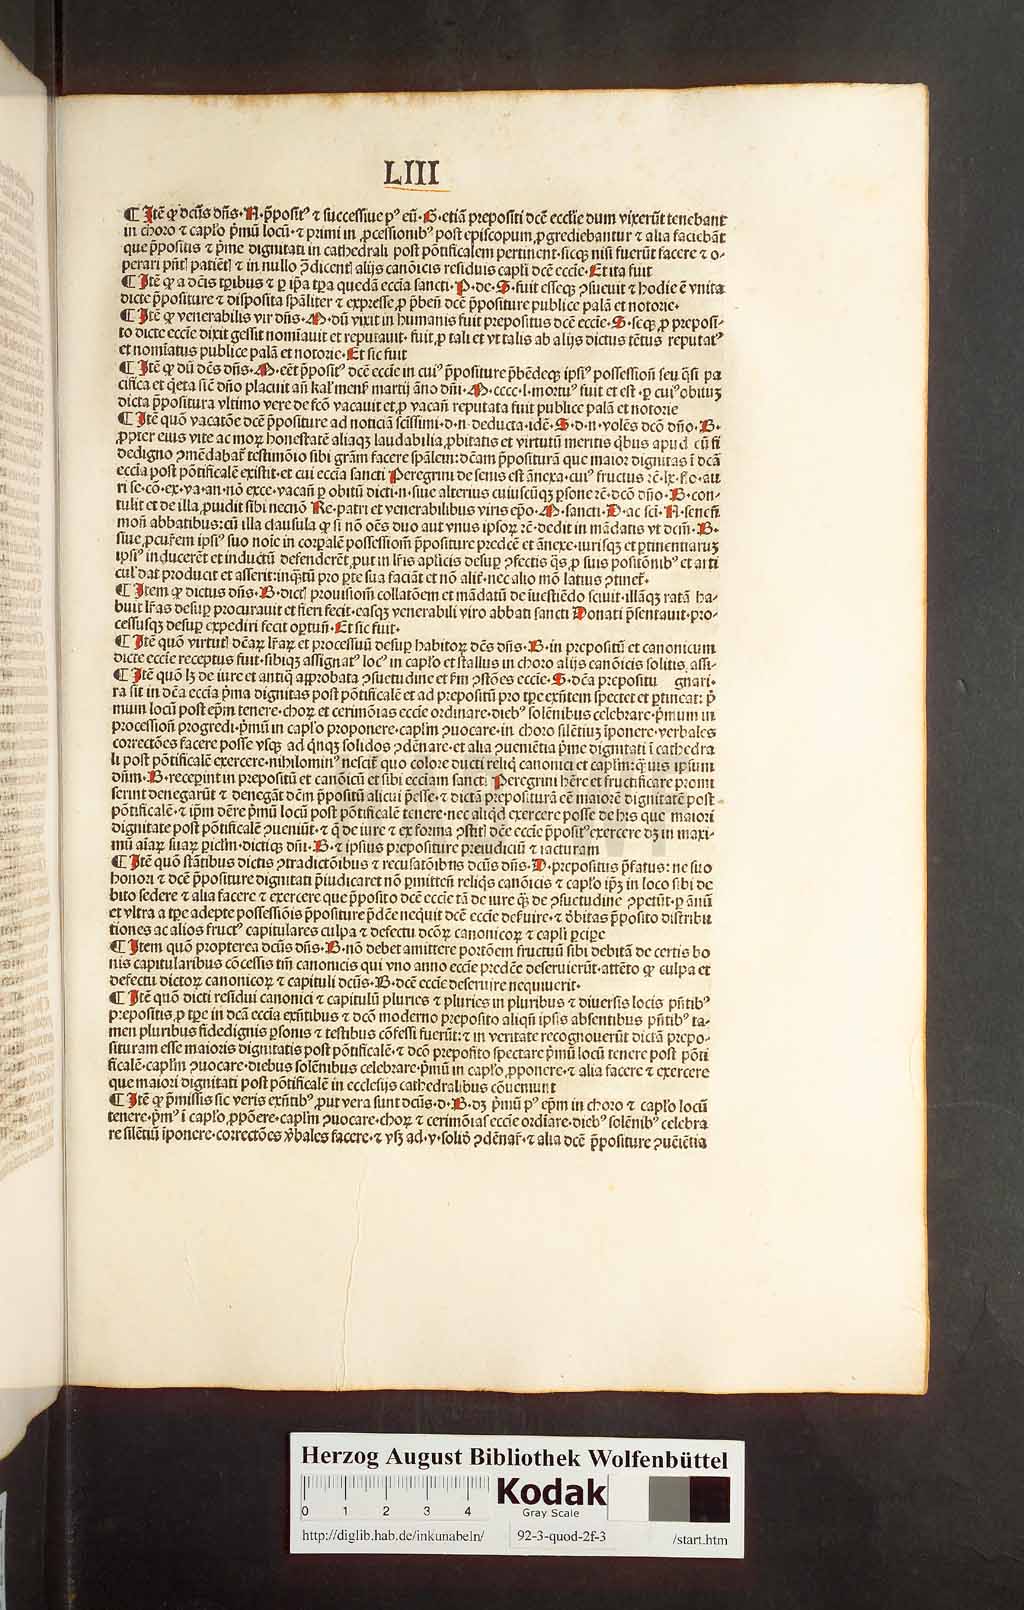 LIII
¶ Itē ꝙ dcūs dn̄s·N·p̄posit⁹ ⁊ successiue p⁹ eū·G·etiā prepositi dcē ecclie dum vixerūt tenebant
in choro ⁊ caplo p̄mū locū·⁊ primi in ꝓcessionib⁹ post episcopum ꝓgrediebantur ⁊ alia faciebāt
que p̄positus ⁊ p̄me dignitati in cathedrali post pōtificalem pertinent·sicqꝫ nisi fuerūt facere ⁊ o-
perari pn̄t patiēt ⁊ in nullo ꝯdicent alijs canōicis residuis capli dcē eccie·Et ita fuit
¶ Itē ꝙ a dcīs tpribus ⁊ ꝑ ip̄a tpa quedā eccia sancti·P·de·S·fuit esseqꝫ ꝯsueuit ⁊ hodie ē vnita
dicte p̄positure ⁊ disposita spāliter ⁊ expresse ꝓ p̄ben̄ dcē p̄positure publice palā et notorie·
¶ Itē ꝙ venerabilis vir dn̄s·M·dū vixit in humanis fuit prepositus dcē eccie·S·seqꝫ ꝓ preposi-
to dicte eccie dixit gessit nomīauit et reputauit·fuit ꝓ tali et vt talis ab alijs dictus tētus reputat⁹
et nomīatus publice palā et notorie·Et sic fuit
¶ Itē ꝙ dū dcūs dn̄s·M·eēt p̄posit⁹ dcē eccie in cui⁹ p̄positure p̄bēdeqꝫ ipsi⁹ possession̄ seu q̄si pa
cifica et q̄eta sic dn̄o placuit an̄ kal mens martij āno dn̄i·M·cccc·l·mortu⁹ fuit et est·ꝑ cui⁹ obituꝫ
dicta p̄positura vltimo vere de fcō vacauit et ꝓ vacan̄ reputata fuit publice palā et notorie
¶ Itē quō vacatōe dcē p̄positure ad noticiā scissimi·d·n·deducta·idē·S·d·n·volēs dcō dn̄o·B·
ꝓpter eius vite ac moꝝ honestatē aliaqꝫ laudabilia ꝓbitatis et virtutū meritis q̄bus apud cū fi
dedigno ꝯmēdabat̄ testimōio sibi grām facere spālem: dcam p̄positurā que maior dignitas ī dcā
eccia post pōtificalē existit·et cui eccia sancti Peregrini de senis est ānexa·cui⁹ fructus ꝛc̄·lx·flo·au
ri se·cō·ex·va·an·nō exce·vacan̄ ꝑ obitū dicti·n·siue alterius cuiuscūqꝫ ꝑsone ꝛc̄·dcō dn̄o·B·con-
tulit et de illa ꝓuidit sibi necnō Re·patri et venerabilibus viris epō·M·sancti·D·ac sci·N·senen̄
mon̄ abbatibus:cū illa clausula ꝙ si nō oēs duo aut vnus ipsoꝝ ꝛc̄·dedit in mādatis vt dcm̄·B·
siue ꝓcurem ipsi⁹ suo noīe in corpalē possessiom̄ p̄positure predcē et ānexe·iurisqꝫ et ꝑtinentiaruꝫ
ipsi⁹ inducerēt et inductū defenderēt ꝓut in lris aplicis desuꝑ ꝯfectis
culdat̄ producit et asserit:inq̄tū pro ꝑte sua faciāt et nō alit̄·nec alio mō latius ꝯtinet̄·
¶ Item ꝙ dictus dn̄s·B·dict prouisiom̄ collatōem et mādatū de īuestiēdo sciuit·illāqꝫ ratā ha-
buit lras desuꝑ procurauit et fieri fecit·easqꝫ venerabili viro abbati sancti Donati p̄sentauit·pro-
cessusqꝫ desuꝑ expediri fecit oꝑtun̄·Et sic fuit·
¶ Itē quō virtut dcaꝝ lraꝝ et processuū desuꝑ habitoꝝ dcūs dn̄s·B·in prepositū et canonicum
dicte eccie receptus fuit·sibiqꝫ assignat⁹ loc⁹ in caplo et stallus in choro alijs canōicis solitis·assi-
¶ Itē quō lꝫ de iure et antiq̄ approbata ꝯsuetudine et fm̄ ꝯstōes eccie·S·dcā prepositu gnari·
ra sit in dcā eccia p̄ma dignitas post pōtificalē et ad prepositū pro tpe exn̄tem spectet et ꝑtineat: p̄
mum locū post ep̄m tenere·choꝝ et cerimōias eccie ordinare·dieb⁹ solēnibus celebrare·p̄mum in
procession̄ progredi·p̄mū in caplo proponere·caplm̄ ꝯuocare·in choro silētiuꝫ īponere·verbales
correctōes facere posse vsqꝫ ad q̄nqꝫ solidos ꝯdēnare·et alia ꝯueniētia p̄me dignitati ī cathedra
li post pōtificalē exercere·nihilomin⁹ nescit̄ quo colore ducti reliq̄ canonici et caplm̄:q̄uis ipsum
dn̄m·B·receperint in prepositū et canōicū et sibi ecciam sancti Peregrini hēre et fructificare promi
serint denegarūt ⁊ denegāt dcm̄ p̄positū alicui p̄esse·⁊ dictā prepositurā eē maiorē dignitatē post
pōtificalē·⁊ ip̄m dēre p̄mū locū post pōtificalē tenere·nec aliq̄d exercere posse de his que maiori
dignitate post pōtificalē ꝯueniūt·⁊ q̄ de iure ⁊ ex forma ꝯstit dcē eccie p̄posit⁹ exercere dꝫ in maxi-
mū aīaꝝ suaꝝ ꝑiclm̄·dictiqꝫ dn̄i·B·⁊ ipsius prepositure preiudiciū ⁊ iacturam
¶ Itē quō stātibus dictis ꝯtradictōibus ⁊ recusatōibus dcūs dn̄s·D·prepositus p̄fatus: ne suo
honori ⁊ dcē p̄positure dignitati p̄iudicaret nō ꝑmitten̄ reliq̄s canōicis ⁊ caplo ip̄ꝫ in loco sibi de
bito sedere ⁊ alia facere ⁊ exercere que p̄posito dcē eccie tā de iure q̄ꝫ de ꝯsuetudine ꝯpetūt·ꝑ ānū
et vltra a tpe adepte possessiōis p̄positure p̄dcē neq̄uit dcē eccie deseruire·⁊ d̄bitas p̄posito distribu
tiones ac alios fruct⁹ capitulares culpa ⁊ defectu dcōꝝ canonicoꝝ ⁊ capli ꝑcipe
¶ Item quō propterea dcūs dn̄s·B·nō debet amittere portōem fructuū sibi debitā de certis bo
nis capitularibus cōcessis tm̄ canonicis qui vno anno eccie predcē deseruierūt·attēto ꝙ culpa et
defectu dictoꝝ canonicoꝝ ⁊ capituli dcūs·B·dcē eccie deseruire nequiuerit·
¶ Itē quō dicti residui canonici ⁊ capitulū pluries ⁊ pluries in pluribus ⁊ diuersis locis pn̄tib⁹
prepositis ꝓ tpe in dcā eccia exn̄tibus ⁊ dcō moderno preposito aliqn̄ ipsis absentibus pn̄tib⁹ ta-
men pluribus fidedignis ꝑsonis ⁊ testibus cōfessi fuerūt: ⁊ in veritate recognouerūt dictā prepo-
situram esse maioris dignitatis post pōtificalē·⁊ dcō preposito spectare p̄mū locū tenere post pōti
ficalē·caplm̄ ꝯuocare·diebus solēnibus celebrare·p̄mū in caplo ꝓponere·⁊ alia facere ⁊ exercere
que maiori dignitati post pōtificalē in ecclesijs cathedralibus cōueniunt
¶ Itē ꝙ p̄missis sic veris exn̄tib⁹ ꝓut vera sunt dcūs·d·B·dꝫ p̄mū p⁹ ep̄m in choro ⁊ caplo locū
tenere·p̄m⁹ ī caplo ꝓpōere·caplm̄ ꝯuocare·choꝝ ⁊ cerimōias eccie ordīare·dieb⁹ solēnib⁹ celebra
re silētiū īponere·correctōes v̄bales facere·⁊ vsꝫ ad·v·solid̄ ꝯdēnar̄·⁊ alia dcē p̄positure ꝯueīetia
Herzog August Bibliothek Wolfenbüttel
0 1 2 3 4
Kodak
Gray Scale
http://diglib.hab.de/inkunabeln/ 92-3-quod-2f-3 /start.htm